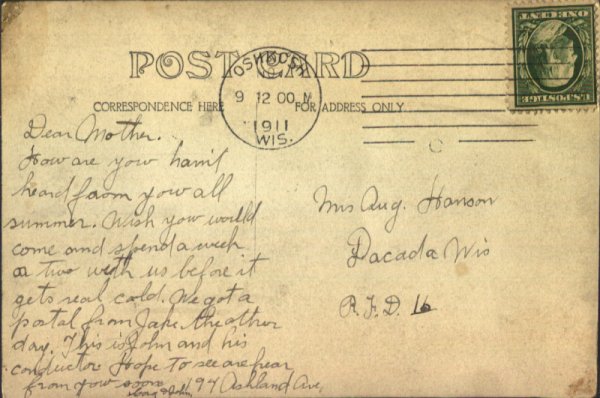 POST CARD
OSHKOSH
9 12 00 M
1911
WIS.
CORRESPONDENCE HERE
FOR ADDRESS ONLY
U.S. POSTAGE
ONE CENT
Dear Mother.
How are yow havnt
heard from yow all
summer. Wish yow would
come and spend a week
or two with us before it
gets real cold. We got a
postal from Jake the other
day. This is John and his
conductor Hope to see are hear
from yow soon
& John
194 Ashland Ave,
Mrs Aug. Hanson
Dacada Wis
R.F.D. 16